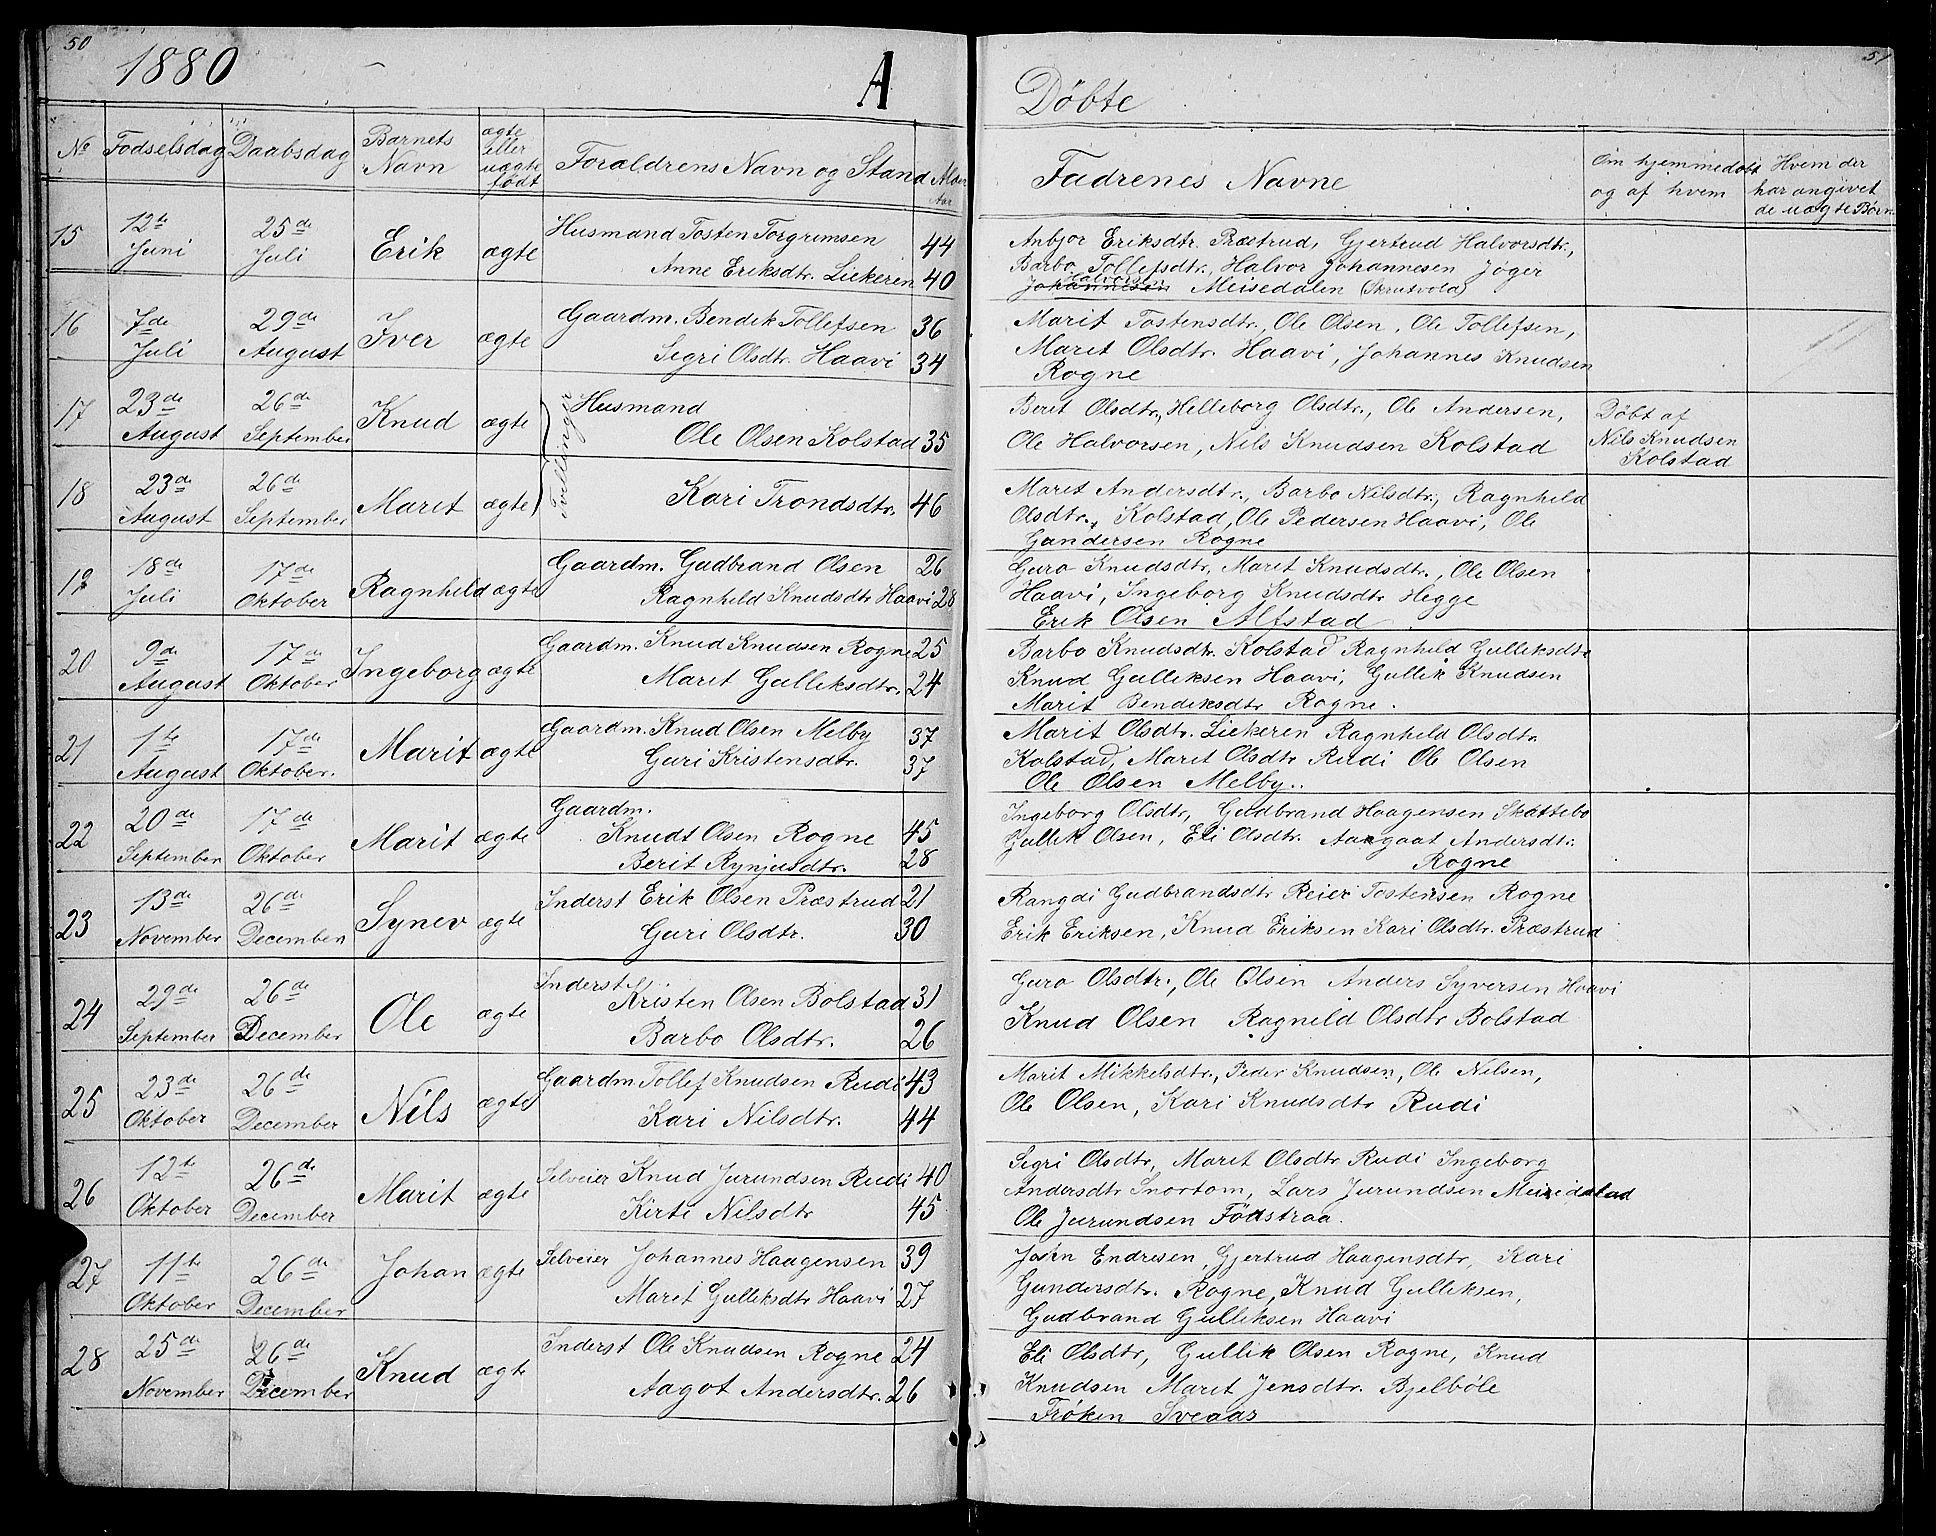 50
1880
A
Døbte
51
No
Fødselsdag
Daabsdag
Barnets
Navn
ægte
eller
uægte
født
Forældrens Navn og Stand
Alder
Aar
Fadrenes Navne
Om hjemmedøbt
og af hvem
Hvem der
har angivet
de uægte Børn
15
12te
Juni
25de
Juli
Erik
ægte
Husmand Tosten Torgrimsen
44
Anne Eriksdtr. Liekeren
40
Anbjør Eriksdtr. Præstrud, Gjertrud Halvorsdtr.,
Barbo Tollefsdtr., Halvor Johannesen Jøger
Halvorsen
Johannesen Meisedalen (Skrutvold)
16
7de
Juli
29de
August
Iver
ægte
Gaardm. Bendik Tollefsen
36
Segri Olsdtr. Haavi
34
Marit Tostensdtr., Ole Olsen, Ole Tollefsen,
Maret Olsdtr. Haavi, Johannes Knudsen
Rogne
17
23de
August
26de
September
Knud
ægte
Tvillinger
Husmand
Ole Olsen Kolstad
35
Berit Olsdtr., Helleborg Olsdtr., Ole Andersen,
Ole Halvorsen, Nils Knudsen Kolstad
Døbt af
Nils Knudsen
Kolstad
18
23de
August
26de
September
Maret
ægte
Kari Trondsdtr.
46
Maret Andersdtr., Barbo Nilsdtr., Ragnheld
Olsdtr., Kolstad, Ole Pedersen Haavi, Ole
Gundersen Rogne
19
18de
Juli
17de
Oktober
Ragnheld
ægte
Gaardm. Gudbrand Olsen
26
Ragnheld Knudsdtr Haavi
28
Guro Knudsdtr, Maret Knudsdtr., Ole Olsen
Haavi, Ingeborg Knudsdtr Hegge
Erik Olsen Alfstad
20
9de
August
17de
Oktober
Ingeborg
ægte
Gaardm. Knud Knudsen Rogne
25
Maret Gulleksdtr.
24
Barbo Knudsdtr. Kolstad Ragnheld Gulleksdtr
Knud Gulleksen Haavi, Gullik Knudsen
Marit Bendeksdtr Rogne.
21
1te
August
17de
Oktober.
Marit
ægte
Gaardm. Knud Olsen Melby
37
Guri Kristensdtr.
37
Marit Olsdtr. Liekeren Ragnheld Olsdtr.
Kolstad, Maret Olsdtr Rudi Ole Olsen
Ole Olsen Melby..
22
20de
September
17de
Oktober
Marit
ægte
Gaardm.
Knudt Olsen Rogne
45
Berit Rynjusdtr.
28
Ingeborg Olsdtr, Guldbrand Haagensen Skattebo
Gullik Olsen, Eli Olsdtr. Aangaat Andersdtr.
Rogne
23
13de
November
26de
December
Synev
ægte
Inderst Erik Olsen Præstrud
21
Guri Olsdtr.
30
Rangdi Gudbrandsdtr Reier Tostensen Rogne
Erik Eriksen, Knud Eriksen Kari Olsdtr. Præstrud
24
29de
September
26de
December
Ole
ægte
Inderst
Kristen Olsen Bolstad
31
Barbo Olsdtr.
26
Guro Olsdtr., Ole Olsen Anders Syversen Haavi
Knud Olsen Ragnild Olsdtr Bolstad
25
23de
Oktober
26de
December
Nils
ægte
Gaardm Tollef Knudsen Rudi
43
Kari Nilsdtr.
44
Marit Mikkelsdtr., Peder Knudsen, Ole Nilsen,
Ole Olsen, Kari Knudsdtr Rudi
26
12te
Oktober
26de
December
Marit
ægte
Selveier Knud Jurundsen Rudi
40
Kirte Nilsdtr
45
Segri Olsdtr, Maret Olsdtr Rudi Ingeborg
Andersdtr Snortom, Lars Jurundsen
Ole Jurundsen Fødstraa.
27
11te
Oktober
26de
December
Johan
ægte
Selveier Johannes Haagensen
39
Maret Gulleksdtr Haavi
27
Jørn Endresen, Gjertrud Haagensdtr, Kari
Gundersdtr. Rogne, Knud Gulleksen,
Gudbrand Gulleksen Haavi
28
25de
November
26de
December
Knud
ægte
Inderst Ole Knudsen Rogne
24
Aagot Andersdtr.
26
Eli Olsdtr, Gullik Olsen Rogne, Knud
Knudsen Maret Jensdtr. Bjelbøle
Frøken Sveaas